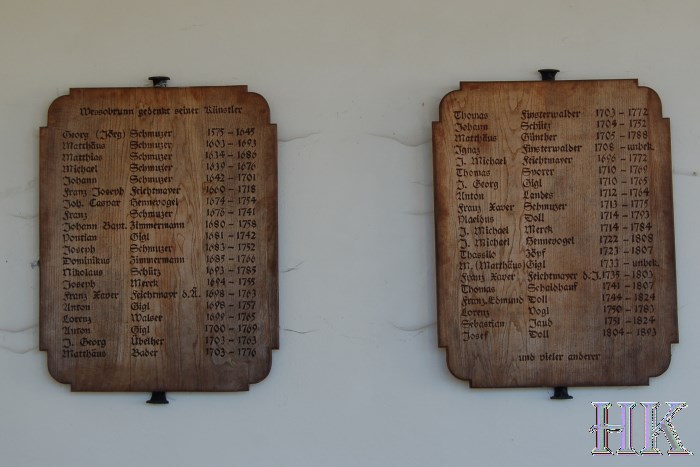 Wessobrunn gedenkt seiner Künstler
Georg (Jörg) Schmuzer 1575 – 1645
Matthäus Schmuzer 1603 – 1693
Matthias Schmuzer 1634 – 1686
Michael Schmuzer 1639 – 1676
Johann Schmuzer 1642 – 1701
Franz Joseph Feichtmayer 1660 – 1718
Joh. Caspar Hennevogel 1674 – 1754
Franz Schmuzer 1676 – 1741
Johann Bapt. Zimmermann 1680 – 1758
Pontian Gigl 1681 – 1742
Joseph Schmuzer 1683 – 1752
Dominikus Zimmermann 1685 – 1766
Nikolaus Schütz 1693 – 1785
Joseph Merck 1694 – 1755
Franz Xaver Feichtmayr d.Ä. 1698 – 1763
Anton Gigl 1698 – 1757
Lorenz Walser 1699 – 1765
Anton Gigl 1700 – 1769
J. Georg Übelher 1703 – 1763
Matthäus Bader 1703 – 1776
Thomas Finsterwalder 1703 – 1772
Johann Schütz 1704 – 1752
Matthäus Günther 1705 – 1788
Ignaz Finsterwalder 1708 – unbek.
J. Michael Feichtmayr 1696 – 1772
Thomas Sporer 1710 – 1769
J. Georg Gigl 1710 – 1765
Anton Landes 1712 – 1764
Franz Xaver Schmuzer 1713 – 1775
Placidus Doll 1714 – 1793
J. Michael Merck 1714 – 1784
J. Michael Hennevogel 1722 – 1808
Thassilo Zöpf 1723 – 1807
M. (Matthäus) Gigl 1733 – unbek.
Franz Xaver Feichtmayr d.J. 1735 – 1803
Thomas Schaidhauf 1741 – 1807
Franz Edmund Doll 1744 – 1824
Lorenz Vogl 1750 – 1783
Sebastian Jaud 1751 – 1824
Josef Doll 1804 – 1893
...und vieler anderer
HK